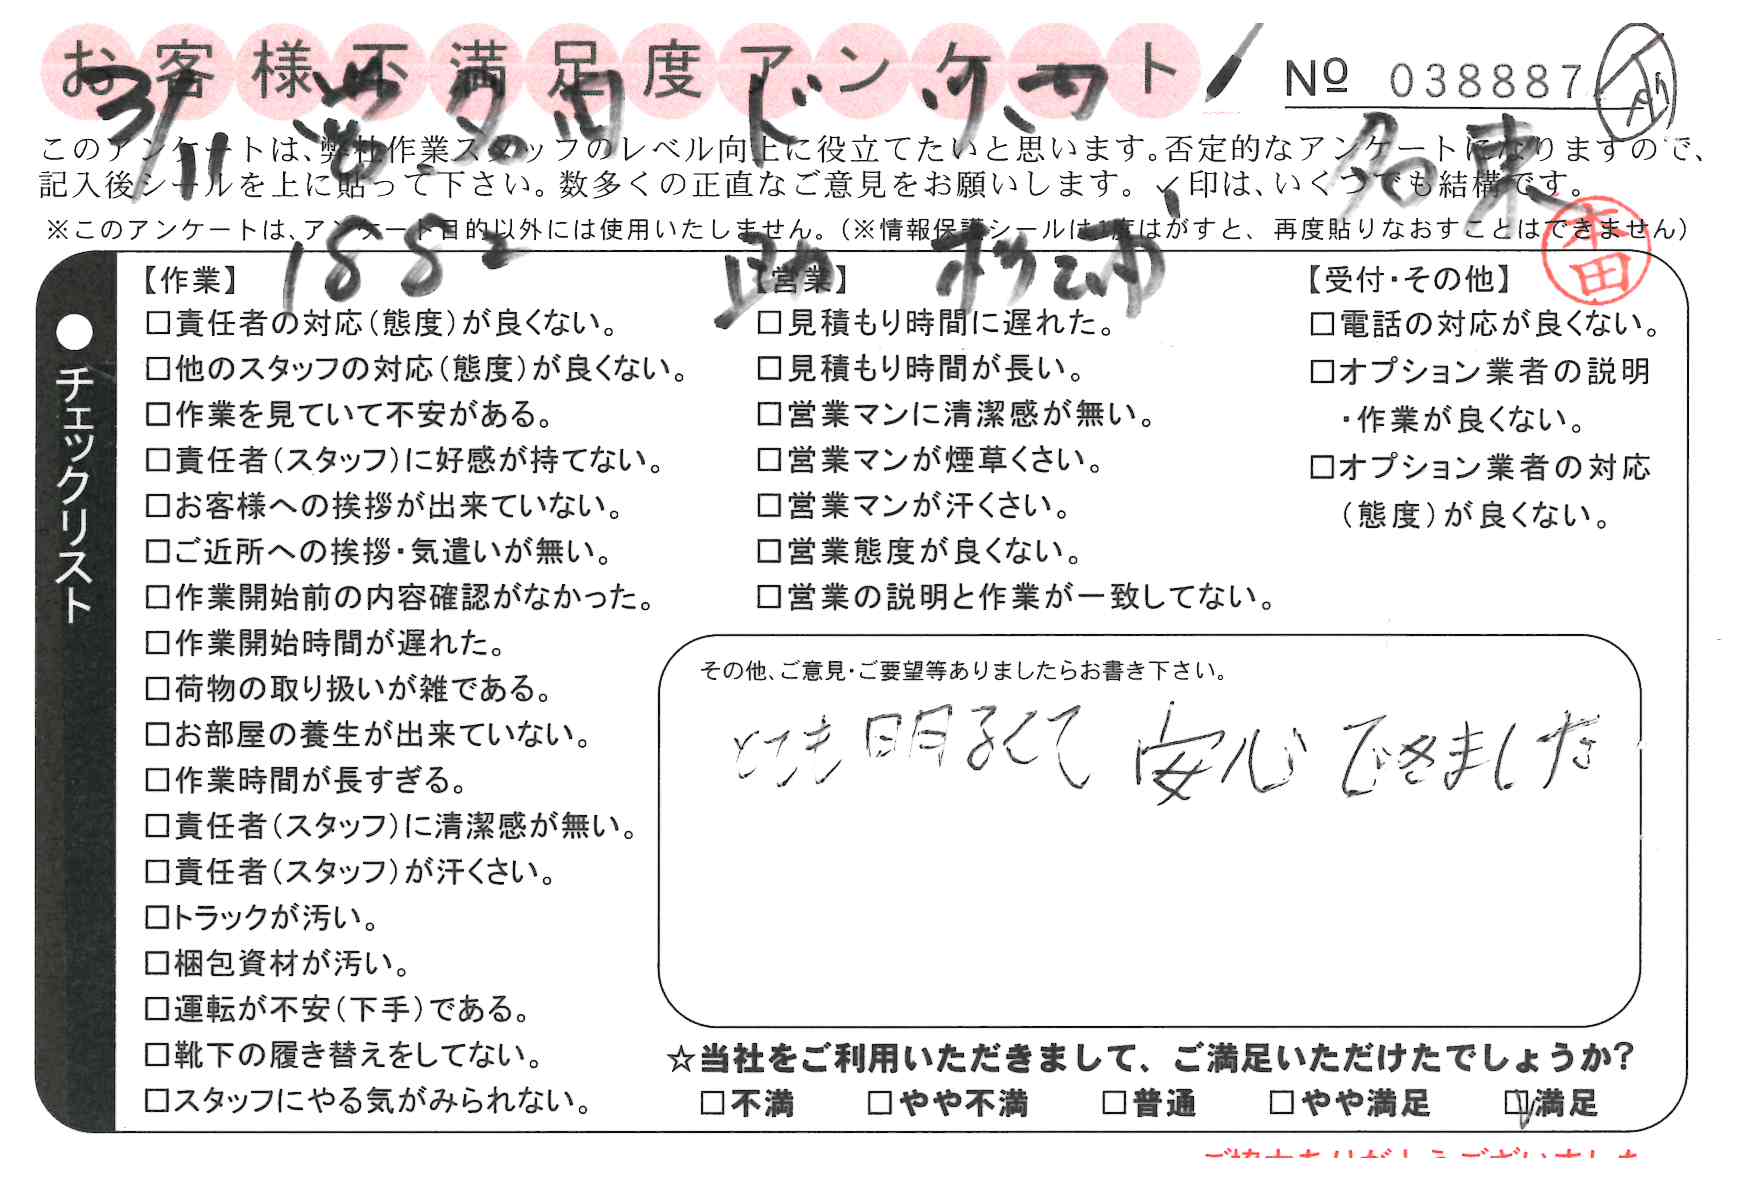 お客様不満足度アンケート
No 038887
3/11
1882
名東
本田
このアンケートは、弊社作業スタッフのレベル向上に役立てたいと思います。否定的なアンケートになりますので、
記入後シールを上に貼って下さい。数多くの正直なご意見をお願いします。✓印は、いくつでも結構です。
※このアンケートは、アンケート目的以外には使用いたしません。（※情報保護シールは1度はがすと、再度貼りなおすことはできません）
チェックリスト
【作業】
□責任者の対応（態度）が良くない。
□他のスタッフの対応（態度）が良くない。
□作業を見ていて不安がある。
□責任者（スタッフ）に好感が持てない。
□お客様への挨拶が出来ていない。
□ご近所への挨拶・気遣いが無い。
□作業開始前の内容確認がなかった。
□作業開始時間が遅れた。
□荷物の取り扱いが雑である。
□お部屋の養生が出来ていない。
□作業時間が長すぎる。
□責任者（スタッフ）に清潔感が無い。
□責任者（スタッフ）が汗くさい。
□トラックが汚い。
□梱包資材が汚い。
□運転が不安（下手）である。
□靴下の履き替えをしてない。
□スタッフにやる気がみられない。
【営業】
□見積もり時間に遅れた。
□見積もり時間が長い。
□営業マンに清潔感が無い。
□営業マンが煙草くさい。
□営業マンが汗くさい。
□営業態度が良くない。
□営業の説明と作業が一致してない。
【受付・その他】
□電話の対応が良くない。
□オプション業者の説明
・作業が良くない。
□オプション業者の対応
（態度）が良くない。
その他、ご意見・ご要望等ありましたらお書き下さい。
とても明るくて 安心できました
☆当社をご利用いただきまして、ご満足いただけたでしょうか？
□不満 □やや不満 □普通 □やや満足 ☑満足
ご協力ありがとうございました